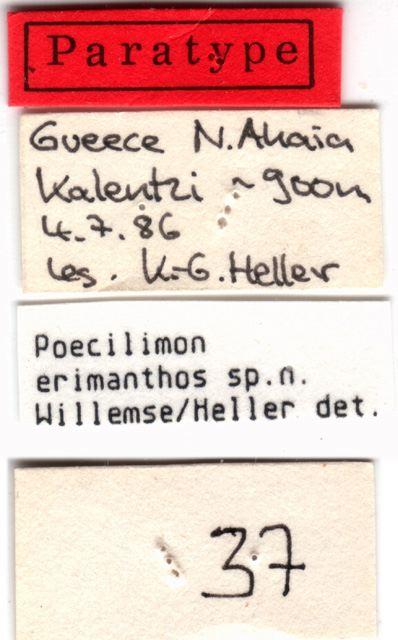 Paratype
Greece N.Ahaia
Kalentzi ~900m
4.7.86
leg. K.-G.Heller
Poecilimon
erimanthos sp.n.
Willemse/Heller det.
37